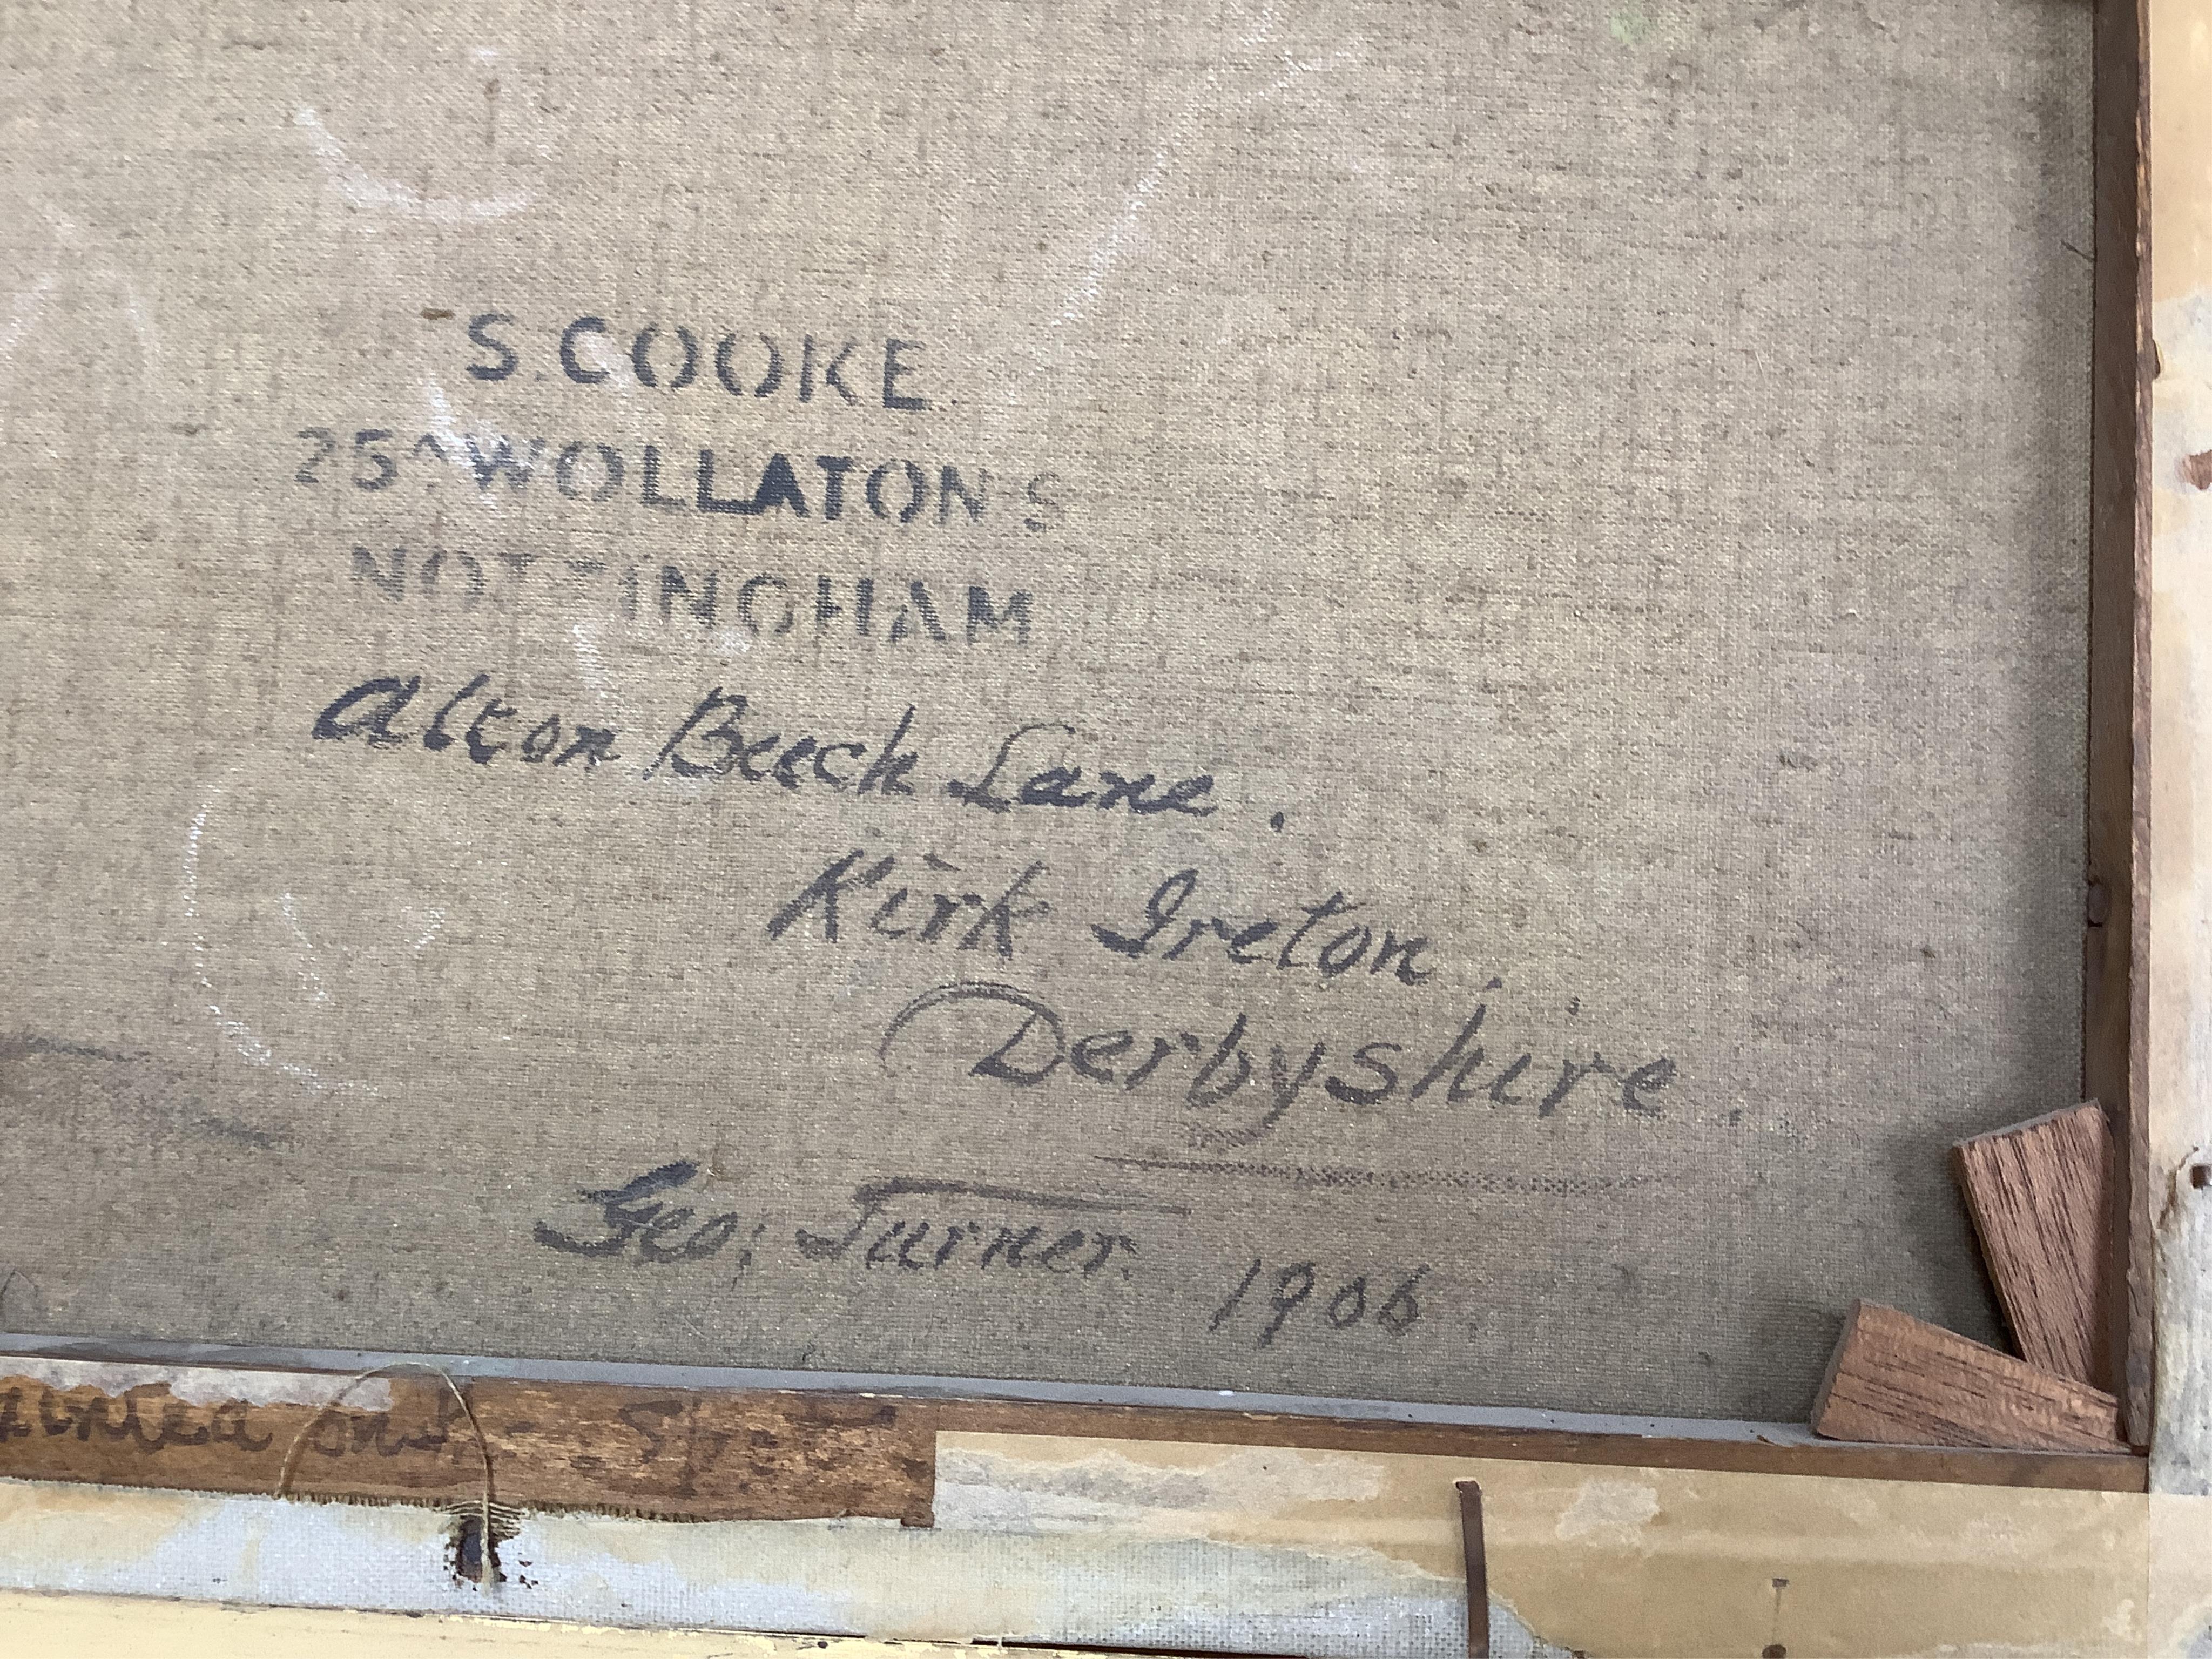 S. COOKE
25^ WOLLATON S
NOTTINGHAM
Alton Beech Lane.
Kirk Ireton.
Derbyshire.
Geo; Turner. 1906